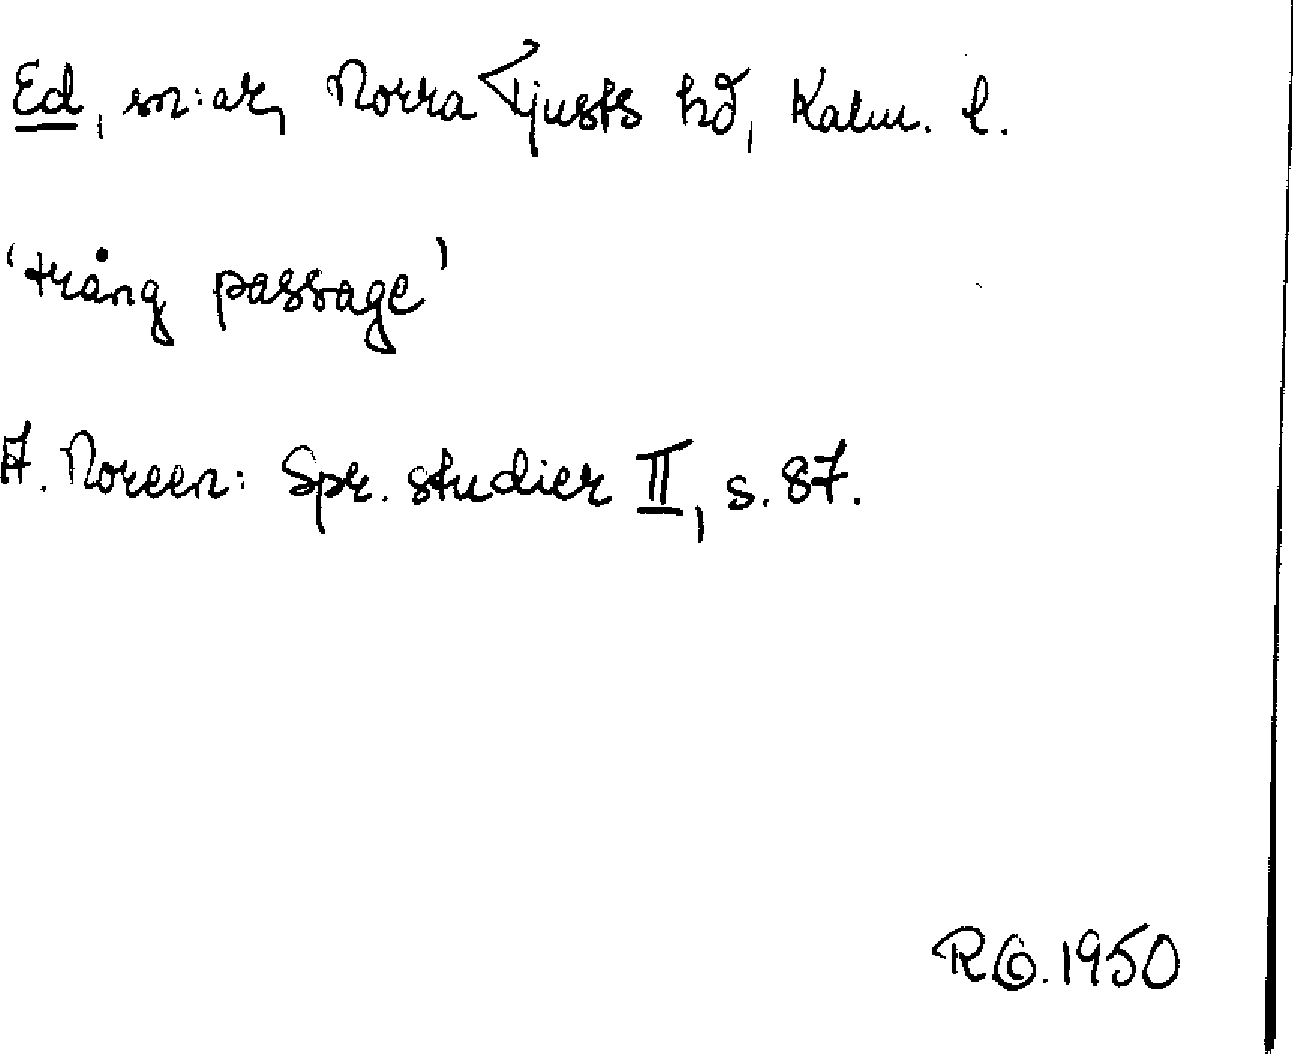 Ed, sn:ar, Norra Tjusts hd, Kalm. l.
'trång passage'
A. Noreen: Spr. studier II, s. 87.
RG. 1950